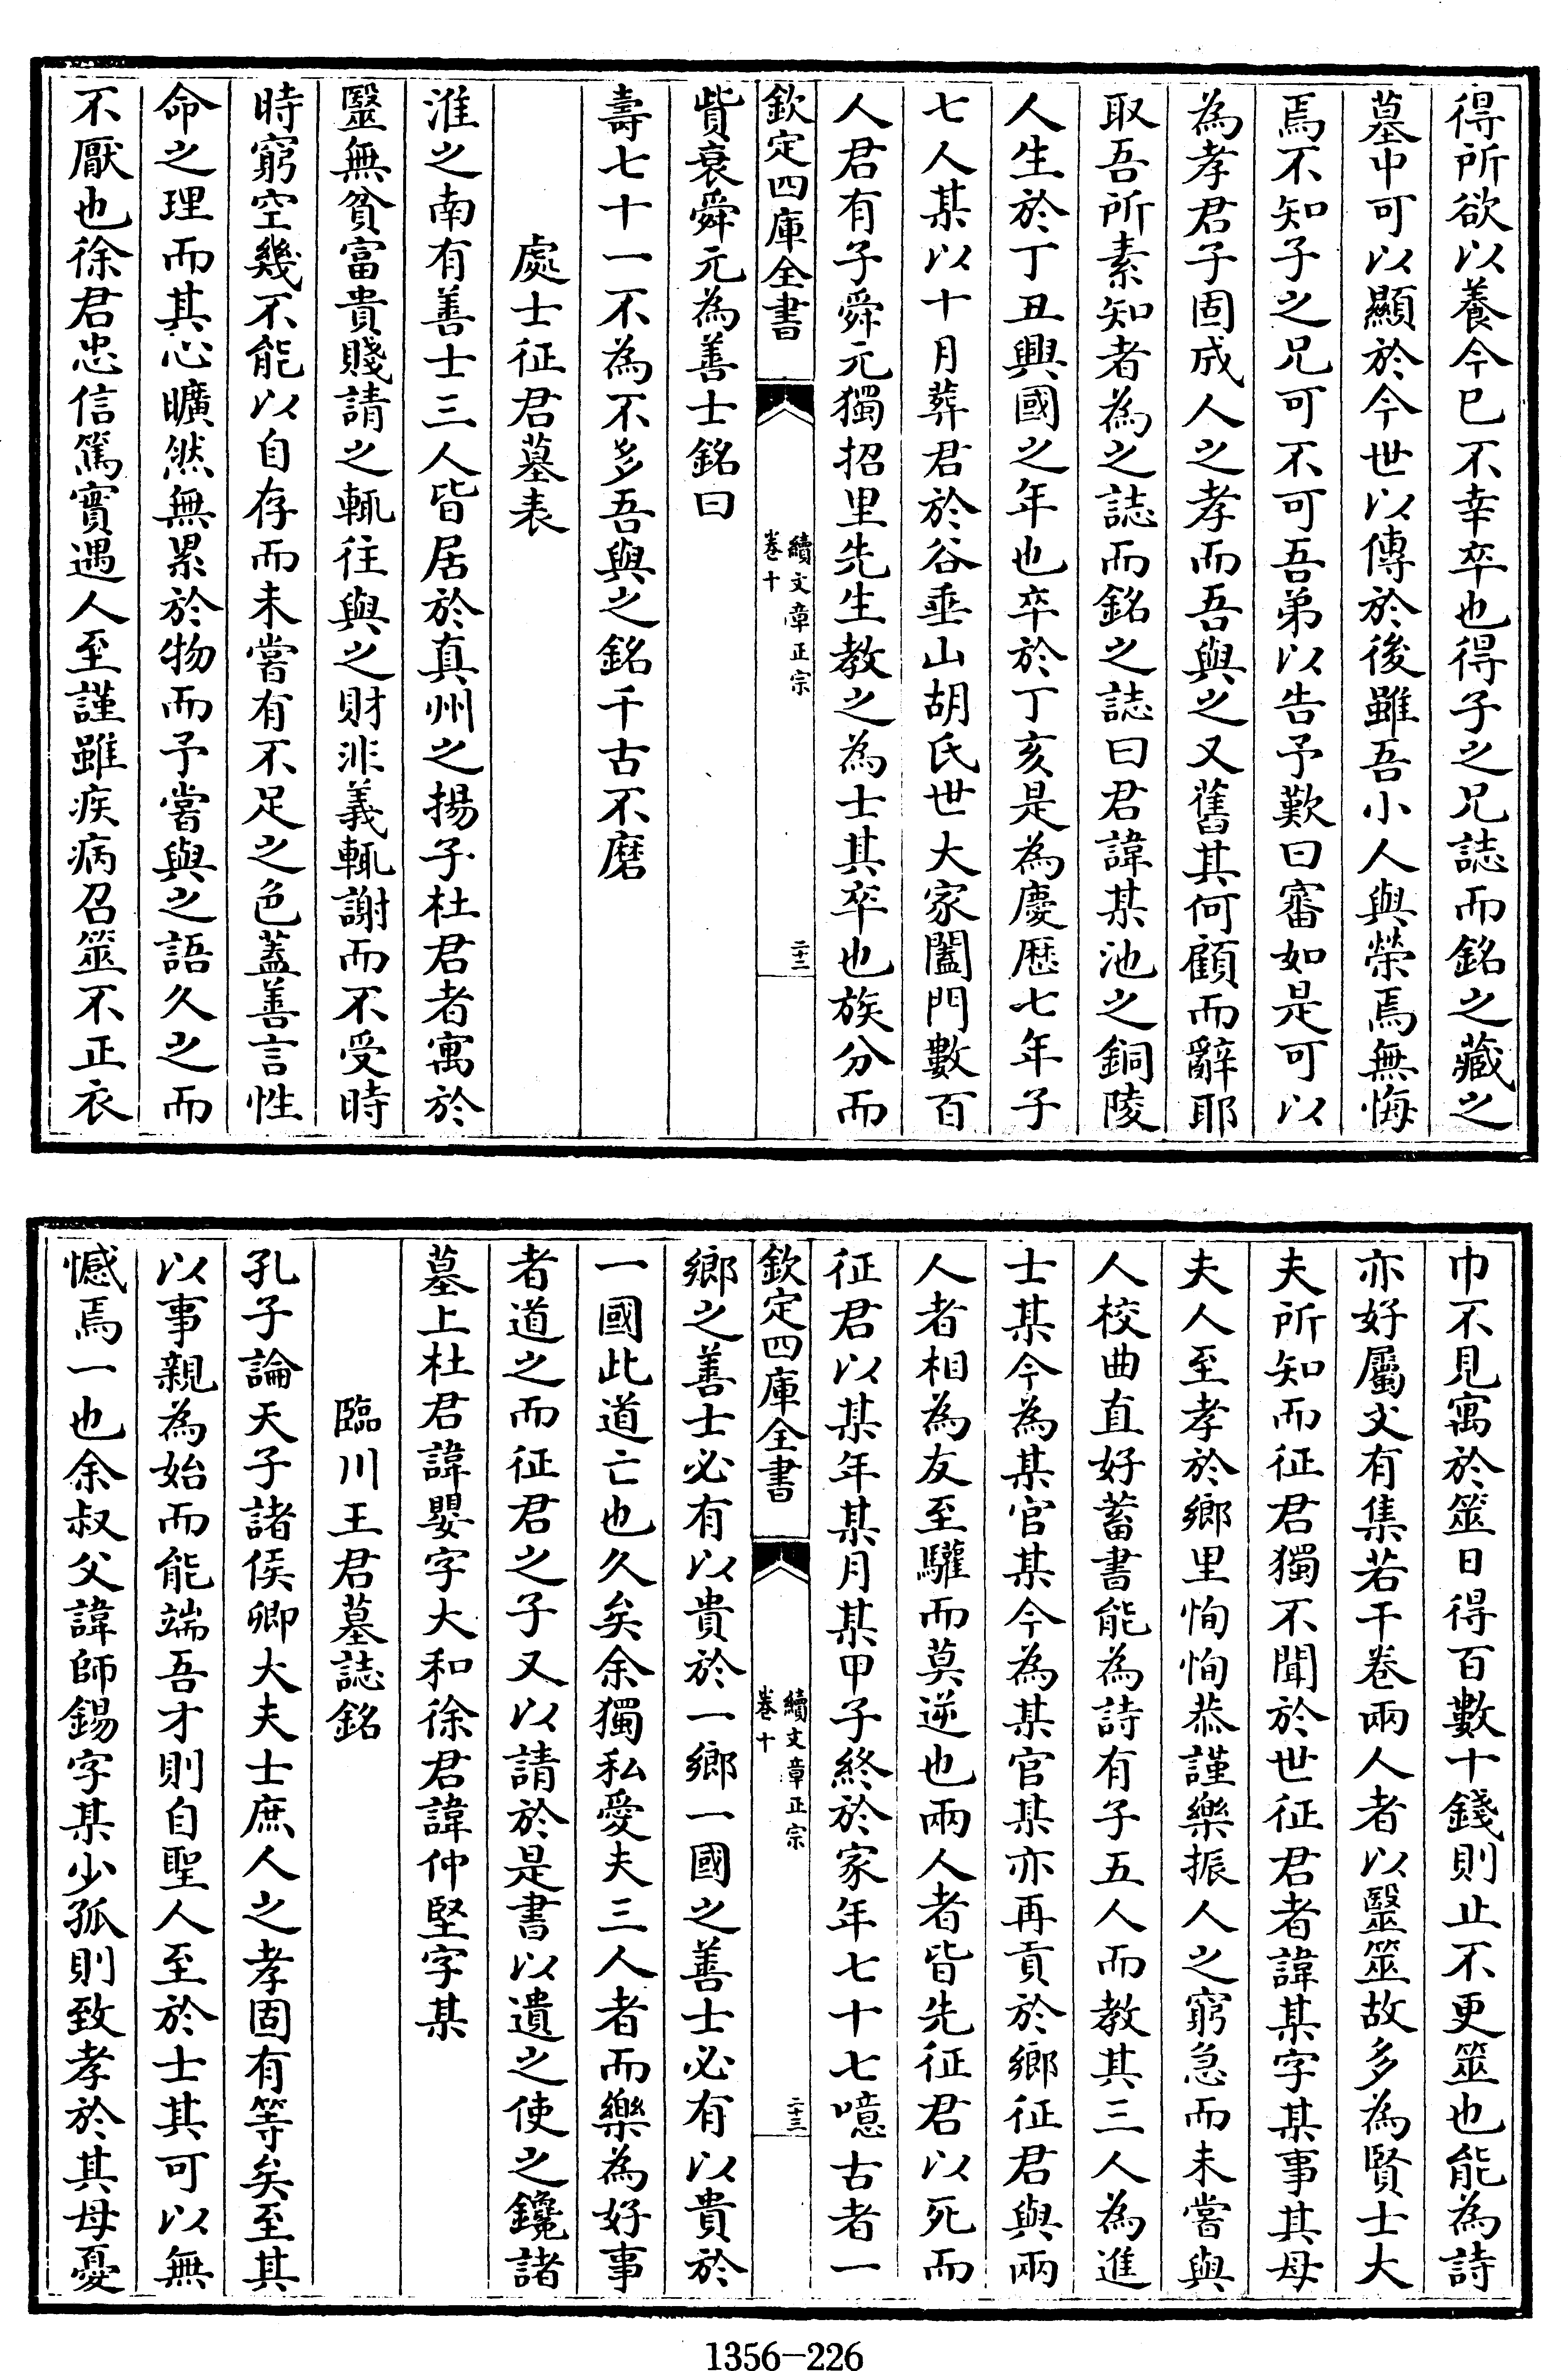 得所欲以養今已不幸卒也得子之兄誌而銘之藏之
墓中可以顯於今世以傳於後雖吾小人與榮焉無悔
焉不知子之兄可不可吾弟以告予歎曰審如是可以
為孝君子固成人之孝而吾與之又舊其何顧而辭耶
取吾所素知者為之誌而銘之誌曰君諱某池之銅陵
人生於丁丑興國之年也卒於丁亥是為慶歷七年子
七人某以十月葬君於谷垂山胡氏世大家闔門數百
人君有子舜元獨招里先生教之為士其卒也族分而
欽定四庫全書
續文章正宗
卷十
二十二
貲衰舜元為善士銘曰
壽七十一不為不多吾與之銘千古不磨
處士征君墓表
淮之南有善士三人皆居於真州之揚子杜君者寓於
毉無貧富貴賤請之輒往與之財非義輒謝而不受時
時窮空幾不能以自存而未嘗有不足之色蓋善言性
命之理而其心曠然無累於物而予嘗與之語久之而
不厭也徐君忠信篤實遇人至謹雖疾病召筮不正衣
巾不見寓於筮日得百數十錢則止不更筮也能為詩
亦好屬文有集若干卷兩人者以毉筮故多為賢士大
夫所知而征君獨不聞於世征君者諱某字某事其母
夫人至孝於鄉里恂恂恭謹樂振人之窮急而未嘗與
人校曲直好蓄書能為詩有子五人而教其三人為進
士某今為某官某今為某官某亦再貢於鄉征君與兩
人者相為友至驩而莫逆也兩人者皆先征君以死而
征君以某年某月某甲子終於家年七十七噫古者一
欽定四庫全書
續文章正宗
卷十
二十三
鄉之善士必有以貴於一鄉一國之善士必有以貴於
一國此道亡也久矣余獨私愛夫三人者而樂為好事
者道之而征君之子又以請於是書以遺之使之鑱諸
墓上杜君諱嬰字大和徐君諱仲堅字某
臨川王君墓誌銘
孔子論天子諸侯卿大夫士庶人之孝固有等矣至其
以事親為始而能端吾才則自聖人至於士其可以無
憾焉一也余叔父諱師錫字某少孤則致孝於其母憂
1356-226